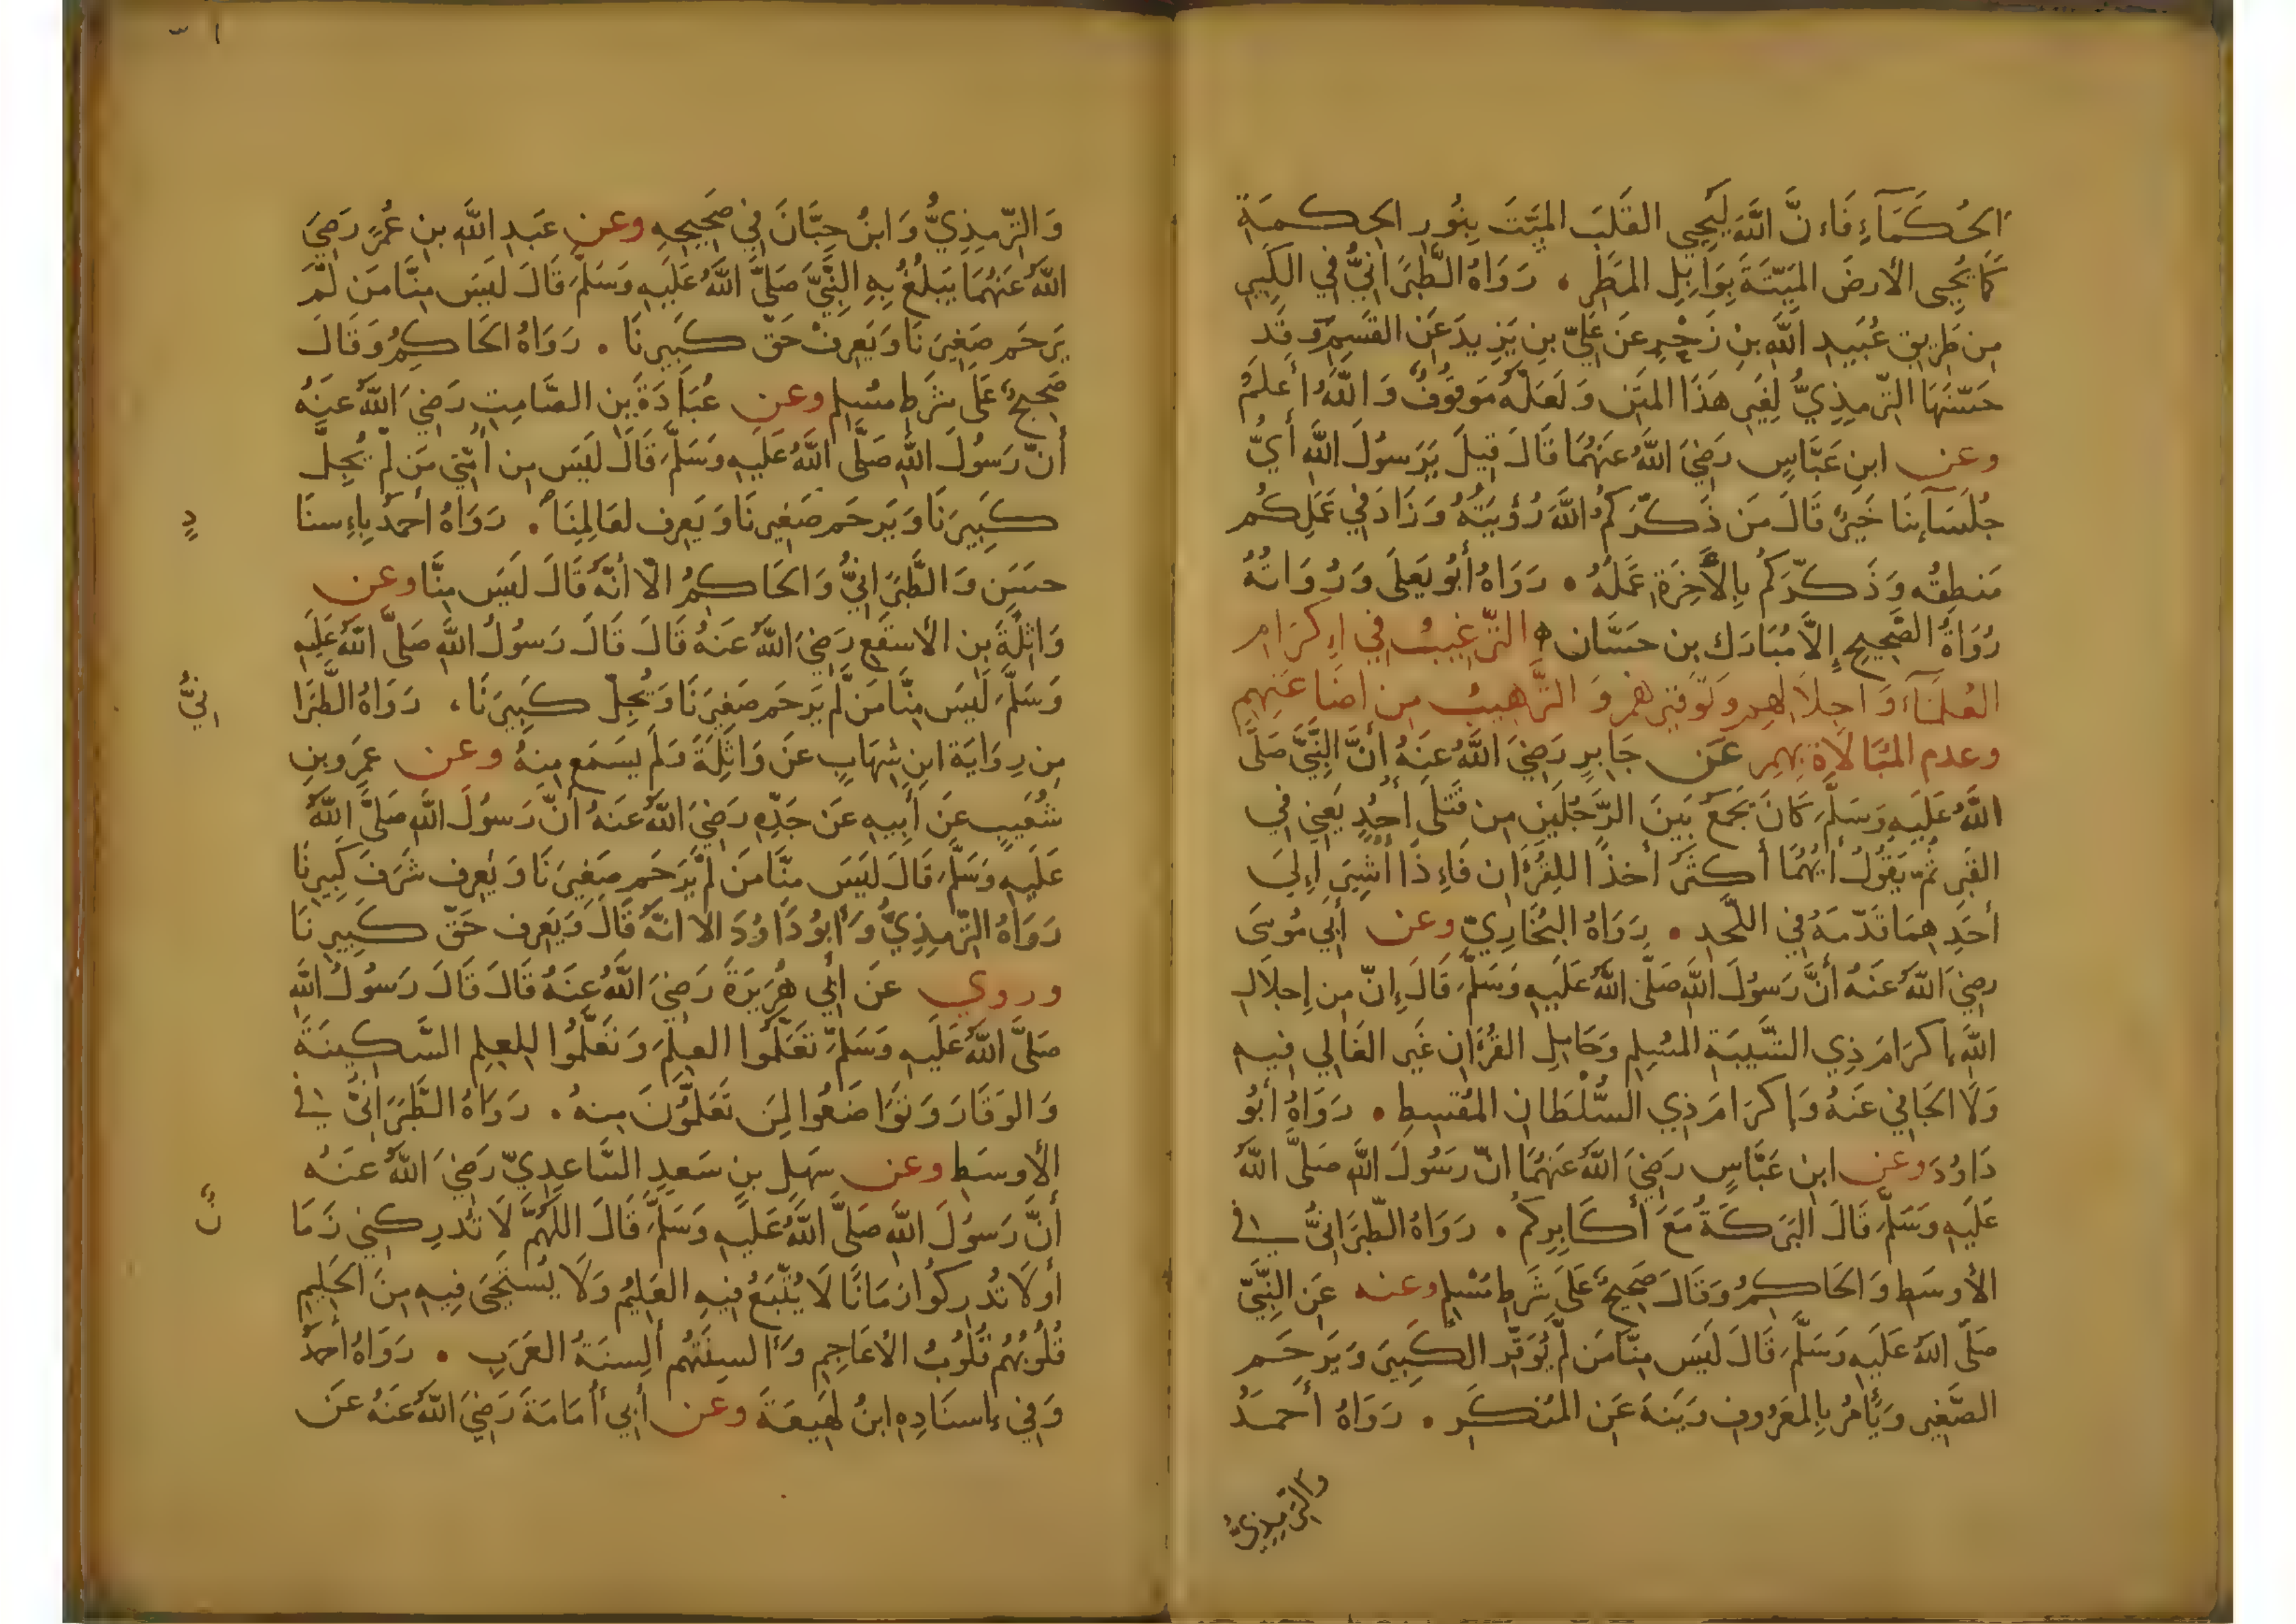 الحُكَمَآءِ فَاءِنَّ اللَّهَ لَيُحْيِي القَلبَ المَيِّتَ بِنُورِ الحِكمَةِ
كَمَا يُحْيِي الأرضَ المَيِّتَةَ بِوَابِلِ المَطَرِ . رَوَاهُ الطَّبَرَانِيُّ فِي الكَبِيرِ
مِن طَرِيقِ عُبَيدِ اللَّهِ بنِ زَحْرٍ عَن عَلِيِّ بنِ يَزِيدَ عَنِ القَسِمِ وَقَد
حَسَّنَهَا التِّرمِذِيُّ لِغَيرِ هَذَا المَتنِ وَلَعَلَّهُ مَوقُوفٌ وَاللَّهُ أَعلَمُ
وعن ابنِ عَبَّاسٍ رَضِيَ اللَّهُ عَنهُمَا قَالَ قِيلَ يَرَسُولَ اللَّهِ أَيُّ
جُلَسَآئِنَا خَيرٌ قَالَ مَن ذَكَّرَكُمُ اللَّهَ رُؤيَتُهُ وَزَادَ فِي عَمَلِكُم
مَنطِقُه وَذَكَّرَكُم بِالأَخِرَةِ عَمَلُهُ . رَوَاهُ أَبُو يَعلَى وَرُوَاتُهُ
رُوَاةُ الصَّحِيحِ إِلاَّ مُبَارَك بن حَسَّان ه التّرغِيبُ فِي اءِكرَامِ
العُلَمَآءِ وَاجِلاَلِهِم وَتَوقِيرِهِم وَالتَّرهِيبُ مِن اضَاعَتِهِم
وعدم المُبَالاَةِ بِهِم عَن جَابِرٍ رَضِيَ اللَّهُ عَنهُ أَنَّ النَّبِيَّ صَلَّى
اللَّهُ عَلَيهِ وَسَلَّمَ كَانَ يَجمَعُ بَينَ الرَّجُلَينِ مِن قَتلَى أُحُدٍ يَعنِي فِي
القَبرِ ثُمَّ يَقُولُ أَيُّهُمَا أَكثَرُ أَخذًا لِلقُرءَانِ فَاءِذَا أُشِيرَ اءِلَى
أَحَدِهِمَا قَدَّمَهُ فِي اللَّحدِ . رَوَاهُ البُخَارِيّ وعن أَبِي مُوسَى
رضِيَ اللَّهُ عَنهُ أَنَّ رَسُولَ اللَّهِ صَلَّى اللَّهُ عَلَيهِ وَسَلَّمَ قَالَ إِنّ مِن إِجلاَلِ
اللَّهِ إكرَامَ ذِي الشَّيبَةِ المُسلِمِ وَحَامِلِ القُرءَانِ غَيرِ الغَالِي فِيهِ
وَلاَ الجَافِي عَنهُ وَإكرَامَ ذِي السُّلْطَانِ المُقسِطِ . رَوَاهُ أَبُو
دَاوُدَ وعن ابنِ عَبَّاسٍ رَضِيَ اللَّهُ عَنهُمَا انّ رَسُولَ اللَّهِ صَلَّى اللَّهُ
عَلَيهِ وَسَلَّمَ قَالَ البَرَكَةُ مَعَ أَكَابِرِكُم . رَوَاهُ الطَّبَرَانِيُّ في
الأَوسَطِ وَالحَاكِمُ وَقَالَ صَحِيحٌ عَلَى شَرطِ مُسلِمٍ وعنه عَنِ النَّبِيِّ
صَلَّى اللَّهُ عَلَيهِ وَسَلَّمَ قَالَ لَيسَ مِنَّا مَن لَّم يُوَقِّرِ الكَبِيرَ وَيَرحَمِ
الصَّغِيرَ وَيَأمُر بِالمَعرُوفِ وَيَنهَ عَنِ المُنكَرِ . رَوَاهُ أَحمَدُ
وَالتِّرمِذِيُّ
وَالتِّرمِذِيُّ وَابنُ حِبَّانَ فِي صَحِيحِهِ وعن عَبدِ اللَّهِ بنِ عُمَرَ رَضِيَ
اللَّهُ عَنهُمَا يَبلُغُ بِهِ النَّبِيَّ صَلَّى اللَّهُ عَلَيهِ وَسَلَّمَ قَالَ لَيسَ مِنَّا مَن لَّم
يَرحَم صَغِيرَنَا وَيَعرِفْ حَقَّ كَبِيرِنَا . رَوَاهُ الحَاكِمُ وَقَالَ
صَحِيحٌ عَلَى شَرطِ مُسلِمٍ وعن عُبَادَةَ بنِ الصَّامِتِ رَضِيَ اللَّهُ عَنهُ
أَنَّ رَسُولَ اللَّهِ صَلَّى اللَّهُ عَلَيهِ وَسَلَّمَ قَالَ لَيسَ مِن أُمَّتِي مَن لَم يُجِلَّ
كَبِيرَنَا وَيَرحَم صَغِيرَنَا وَيَعرِف لعَالِمِنَا . رَوَاهُ أَحمَدُ بِاءِسنَا
دٍ
حسَنٍ وَالطَّبَرَانِيُّ وَالحَاكِمُ الاّ أَنَّهُ قَالَ لَيسَ مِنَّا وعن
وَاثِلَةَ بنِ الأَسقَعِ رَضِيَ اللَّهُ عَنهُ قَالَ قَالَ رَسُولُ اللَّهِ صَلَّى اللَّهُ عَلَيهِ
وَسَلَّمَ لَيسَ مِنَّا مَن لَّم يَرحَم صَغِيرَنَا وَيُجِلَّ كَبِيرَنَا . رَوَاهُ الطَّبَرَا
نِيُّ
مِن رِوَايَةِ ابنِ شِهَابٍ عَن وَاثِلَةَ وَلَم يَسمَع مِنهُ وعن عَمرِو بنِ
شُعَيبٍ عَن أَبِيهِ عَن جَدِّهِ رَضِيَ اللَّهُ عَنهُ أَنّ رَسُولَ اللَّهِ صَلَّى اللَّهُ
عَلَيهِ وَسَلَّمَ قَالَ لَيسَ مِنَّا مَن لَم يَرحَم صَغِيرَنَا وَيَعرِف شَرَفَ كَبِيرِنَا
رَوَاهُ التِّرمِذِيُّ وَأَبُو دَاوُدَ الا انَّهُ قَالَ وَيَعرِف حَقّ كَبِيرِنَا
وروي عَن أَبِي هُرَيرَةَ رَضِيَ اللَّهُ عَنهُ قَالَ قَالَ رَسُولُ اللَّهِ
صَلَّى اللَّهُ عَلَيهِ وَسَلَّمَ تَعَلَّمُوا العِلمَ وَتَعَلَّمُوا لِلعِلمِ السَّكِينَةَ
وَالوَقَارَ وَتَوَاضَعُوا لِمَن تَعَلَّمُونَ مِنهُ . رَوَاهُ الطَّبَرَانِيُّ في
الأَوسَطِ وعن سَهلِ بنِ سَعدٍ السَّاعِدِيّ رَضِيَ اللَّهُ عَنهُ
أَنَّ رَسُولَ اللَّهِ صَلَّى اللَّهُ عَلَيهِ وَسَلَّمَ قَالَ اللَّهُمَّ لاَ تُدرِكنِي زَمَا
نٌ
أَو لاَ تُدرِكُوا زَمَانًا لاَ يُتَّبَعُ فِيهِ العَلِيمُ وَلاَ يُستَحيَى فِيهِ مِنَ الحَلِيمِ
قُلُوبُهُم قُلُوبُ الأَعَاجِمِ وَأَلسِنَتُهُم أَلسِنَةُ العَرَبِ . رَوَاهُ أَحمَدُ
وَفِي إِسنَادِهِ ابنُ لَهِيعَةَ وعن أَبِي أُمَامَةَ رَضِيَ اللَّهُ عَنهُ عَن